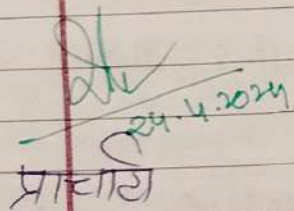 24.4.2024
प्राचार्य